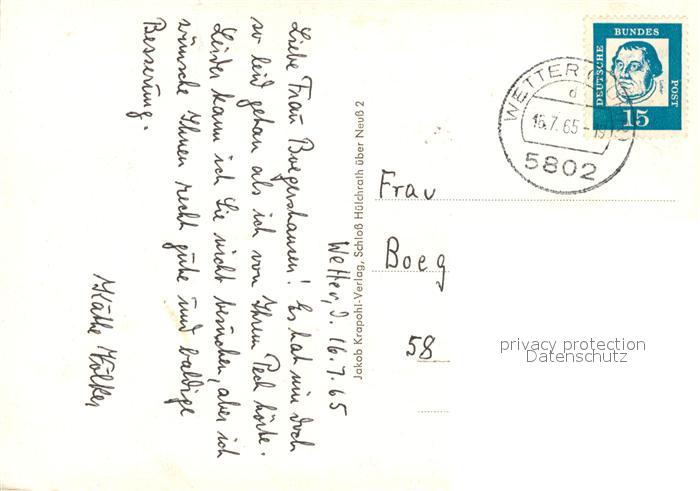 Wetter, d. 16.7.65
Liebe Frau Boegershausen! Es hat mir doch
so leid getan als ich von Ihrem Pech hörte.
Leider kann ich Sie nicht besuchen, aber ich
wünsche Ihnen recht gute und baldige
Besserung.
Käthe Völker
Jakob Krapohl-Verlag, Schloß Hülchrath über Neuß 2
DEUTSCHE
BUNDES
POST
15
WETTER
d
16.7.65-19
5802
Frau
Boeg
58
privacy protection
Datenschutz